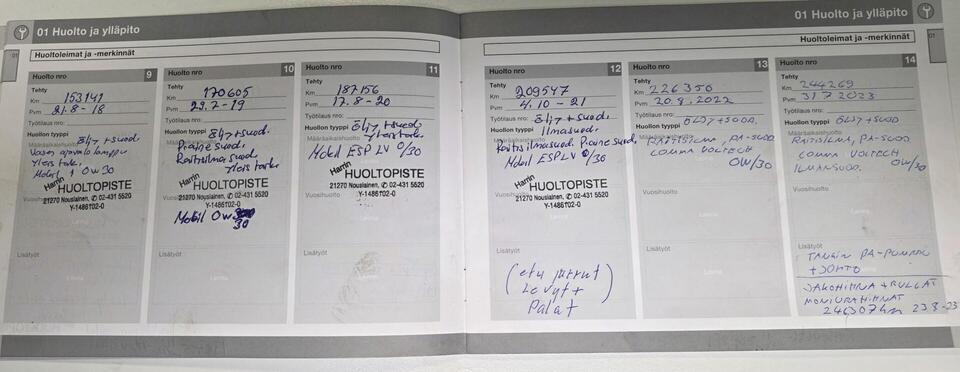 01 Huolto ja ylläpito
Huoltoleimat ja -merkinnät
01
Huolto nro 9
Tehty
Km 153141
Pvm 21.8-18
Työtilaus nro:
Huollon tyyppi Öljy+suod.
Määräaikaishuolto
Vasen ajovalo lamppu
Yleis tark.
Mobil 1 0w30
Vuosihuolto
Harrin
HUOLTOPISTE
21270 Nousiainen, ✆ 02-431 5520
Y-1486102-0
Leima
Lisätyöt
Leima
Huolto nro 10
Tehty
Km 170605
Pvm 29.7-19
Työtilaus nro:
Huollon tyyppi Öljy+suod.
Määräaikaishuolto
P.aine suod.
Raitisilma suod.
Yleis tark.
Harrin
HUOLTOPISTE
Vuosihuolto
21270 Nousiainen, ✆ 02-431 5520
Y-1486102-0
Mobil 0w
30
Lisätyöt
Leima
Huolto nro 11
Tehty
Km 187156
Pvm 17.8-20
Työtilaus nro:
Huollon tyyppi Öljy+suod.
Yleis tark.
Määräaikaishuolto
Mobil ESP LV 0/30
Harrin
HUOLTOPISTE
21270 Nousiainen, ✆ 02-431 5520
Vuosihuolto
Y-1486102-0
Leima
Lisätyöt
Leima
01 Huolto ja ylläpito
Huoltoleimat ja -merkinnät
01
Huolto nro 12
Tehty
Km 209547
Pvm 4.10-21
Työtilaus nro:
Huollon tyyppi Öljy+suod.
Ilmasuod.
Määräaikaishuolto
Raitisilmasuod. P.aine suod.
Mobil ESP LV 0/30
Harrin
HUOLTOPISTE
21270 Nousiainen, ✆ 02-431 5520
Vuosihuolto
Y-1486102-0
Lisätyöt
(etu jarrut
Levyt+
Palat)
Huolto nro 13
Tehty
Km 226350
Pvm 20.9.2022
Työtilaus nro:
Huollon tyyppi ÖLJY+SUOD.
Määräaikaishuolto
RAITISILMA, PA-SUOD
COMMA VOLTECH
0W/30
Vuosihuolto
Leima
Lisätyöt
Leima
Huolto nro 14
Tehty
Km 244269
Pvm 31.7.2023
Työtilaus nro:
Huollon tyyppi ÖLJY+SUOD
Määräaikaishuolto
RAITISILMA, PA-SUOD
COMMA VOLTECH
ILMANSUOD. 0W/30
Vuosihuolto
Leima
Lisätyöt
TANKIN PA-PUMPPU
+JOHTO
JAKOHIHNA + RULLAT
MONIURAHIHNAT
246307km 23.8-23